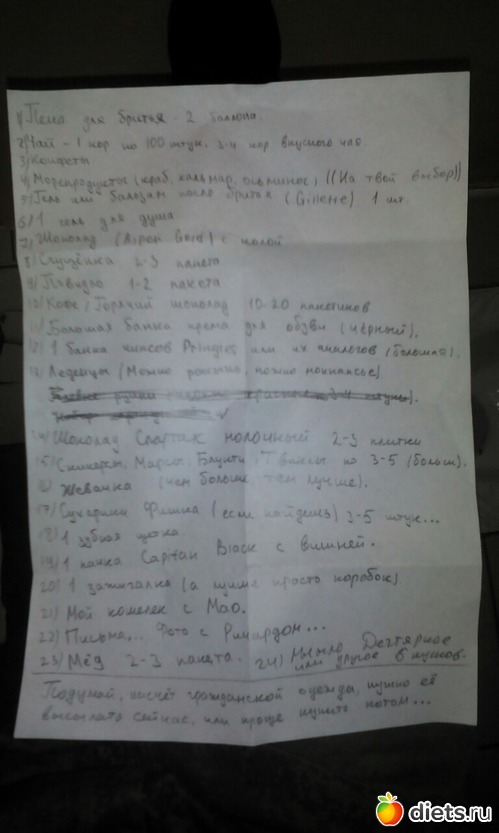 1) Пена для бритья - 2 баллона.
2) Чай - 1 кор по 100 штук. 3-4 кор вкусного чая
3) Конфеты
4) Морепродукты (краб, кальмар, осьминог) ((На твой выбор))
5) Гель или бальзам после бритья (Gillette) 1 шт.
6) 1 гель для душа
7) Шоколад (Alpen Gold) с
8) Сгущёнка 2-3 пакета
9) Повидло 1-2 пакета
10) Кофе / Горячий шоколад 10-20 пакетиков
11) Большая банка крема для обуви (чёрный).
12) 1 банка чипсов Pringles или их аналогов (большая).
13) Леденцы (Можно разные, можно
14) Шоколад Спартак молочный 2-3 плитки
15) Сникерсы, Марсы, Баунти, Твиксы по 3-5 (больш).
16) Жевачка (чем больше, тем лучше).
17) Сухарики Фишка (если найдешь) 3-5 штук...
18) 1 зубная щетка
19) 1 пачка Capitan Black с вишней.
20) 1 зажигалка (а лучше просто коробок).
21) Мой кошелек с Мао.
22) Письма... Фото с Ричардом...
23) Мёд 2-3 пакета. 24) Мыло Дегтярное
или другое 6 кусков.
Подумай, насчёт гражданской одежды, нужно её
высылать сейчас, или проще купить потом...
diets.ru